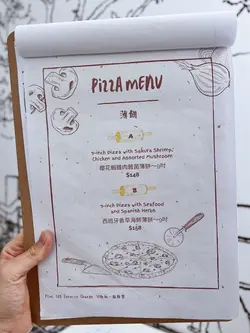 PIZZA MENU
薄餅
A
9-inch Pizza with Sakura Shrimp,
Chicken and Assorted Mushroom
櫻花蝦雞肉雜菌薄餅～9吋
$148
B
9-inch Pizza with Seafood
and Spanish Herbs
西班牙香草海鮮薄餅～9吋
$158
Plus 10% Service Charge